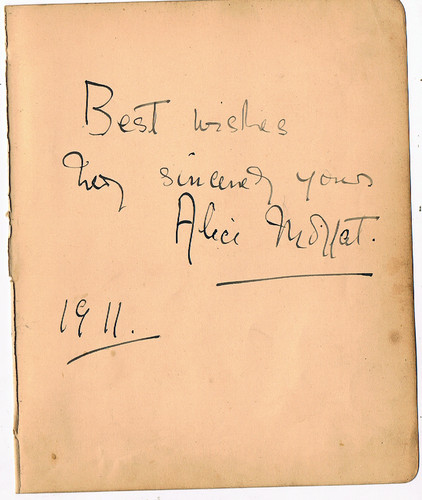 Best wishes
Very sincerely yours
Alice Moffat.
1911.